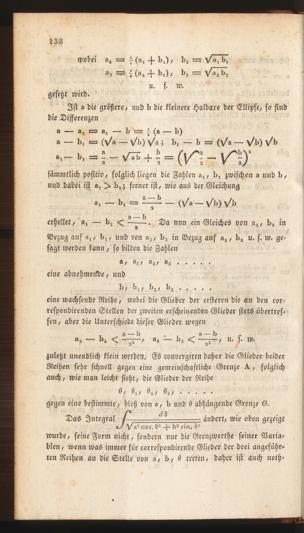 138
wobei a₂ = ½ (a₁ + b₁), b₂ = √a₁ b₁
a₃ = ½ (a₂ + b₂), b₃ = √a₂ b₂
u. s. w.
gesetzt wird.
Ist a die größere, und b die kleinere Halbaxe der Ellipse, so sind
die Differenzen
a — a₁ = a₁ — b = ½ (a — b)
a — b₁ = (√a — √b) √a; b₁ — b = (√a — √b) √b
a₁ — b₁ = a/2 — √ab + b/2 = (√a/2 — √b/2)²
sämmtlich positiv, folglich liegen die Zahlen a₁, b₁ zwischen a und b,
und dabei ist a₁ > b₁; ferner ist, wie aus der Gleichung
a₁ — b₁ = (a — b)/2 — (√a — √b) √b
erhellet, a₁ — b₁ < (a — b)/2. Da nun ein Gleiches von a₂, b₂ in
Bezug auf a₁, b₁, und von a₃, b₃ in Bezug auf a₂, b₂ u. s. w. ge-
sagt werden kann, so bilden die Zahlen
a, a₁, a₂, a₃ . . . . .
eine abnehmende, und
b, b₁, b₂, b₃ . . . . .
eine wachsende Reihe, wobei die Glieder der ersteren die an den cor-
respondirenden Stellen der zweiten erscheinenden Glieder stets übertref-
fen, aber die Unterschiede dieser Glieder wegen
a₂ — b₂ < (a — b)/2², a₃ — b₃ < (a — b)/2³, u. s. w.
zuletzt unendlich klein werden. Es convergiren daher die Glieder beider
Reihen sehr schnell gegen eine gemeinschaftliche Grenze A, folglich
auch, wie man leicht sieht, die Glieder der Reihe
θ, θ₁, θ₂, θ₃, . . . . .
gegen eine bestimmte, bloß von a, b und θ abhängende Grenze Θ.
Das Integral ∫ dθ/√a² cos. θ² + b² sin. θ² ändert, wie oben gezeigt
wurde, seine Form nicht, sondern nur die Grenzwerthe seiner Varia-
blen, wenn was immer für correspondirende Glieder der drei angeführ-
ten Reihen an die Stelle von a, b, θ treten, daher ist auch noth-